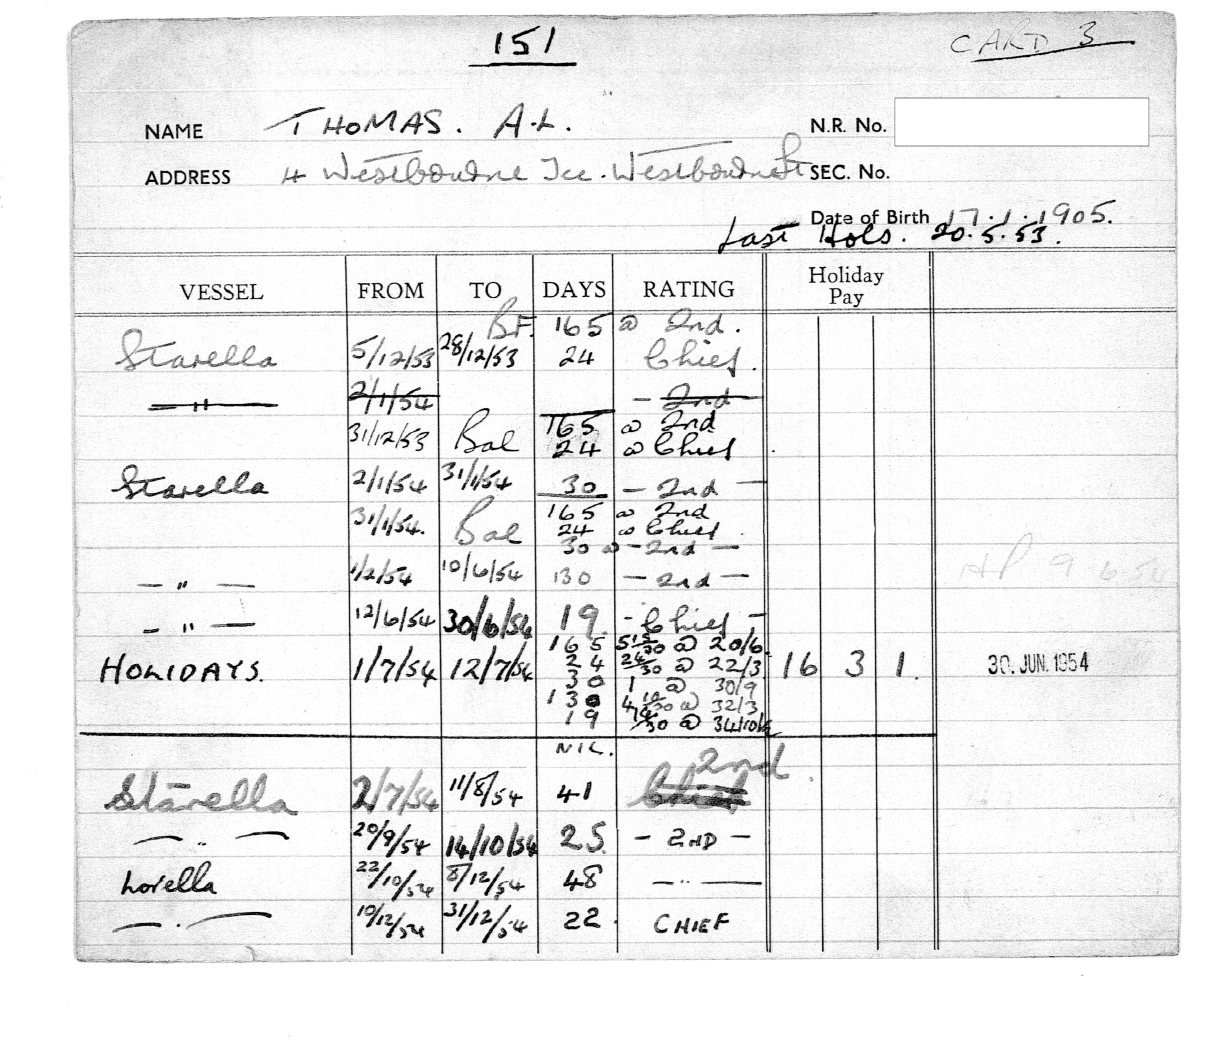 151
CARD 3
NAME THOMAS. A.L. N.R. No.
ADDRESS 4 Westbourne Tce. Westbourne St SEC. No.
Date of Birth 17.1.1905.
Last Hols. 20.5.53.
VESSEL FROM TO DAYS RATING Holiday Pay
BF. 165 @ 2nd.
Starella 5/12/53 28/12/53 24 Chief.
—"— 2/1/54 - 2nd
165 @ 2nd
31/12/53 Bal 24 @ Chief
Starella 2/1/54 31/1/54 30 - 2nd -
165 @ 2nd
31/1/54. Bal 24 @ Chief
30 @ - 2nd -
—"— 1/2/54 10/6/54 130 - 2nd -
HP 9 6.54
—"— 12/6/54 30/6/54 19 - Chief -
165 5 15/30 @ 20/6
24 24/30 @ 22/3
HOLIDAYS. 1/7/54 12/7/54 30 1 @ 30/9 16 3 1. 30. JUN. 1954
130 4 10/30 @ 32/3
19 19/30 @
NIL.
2nd.
Starella 2/7/54 11/8/54 41 Chief
—"— 20/9/54 14/10/54 25 - 2ND -
Lorella 22/10/54 8/12/54 48 —"—
—"— 10/12/54 31/12/54 22. CHIEF